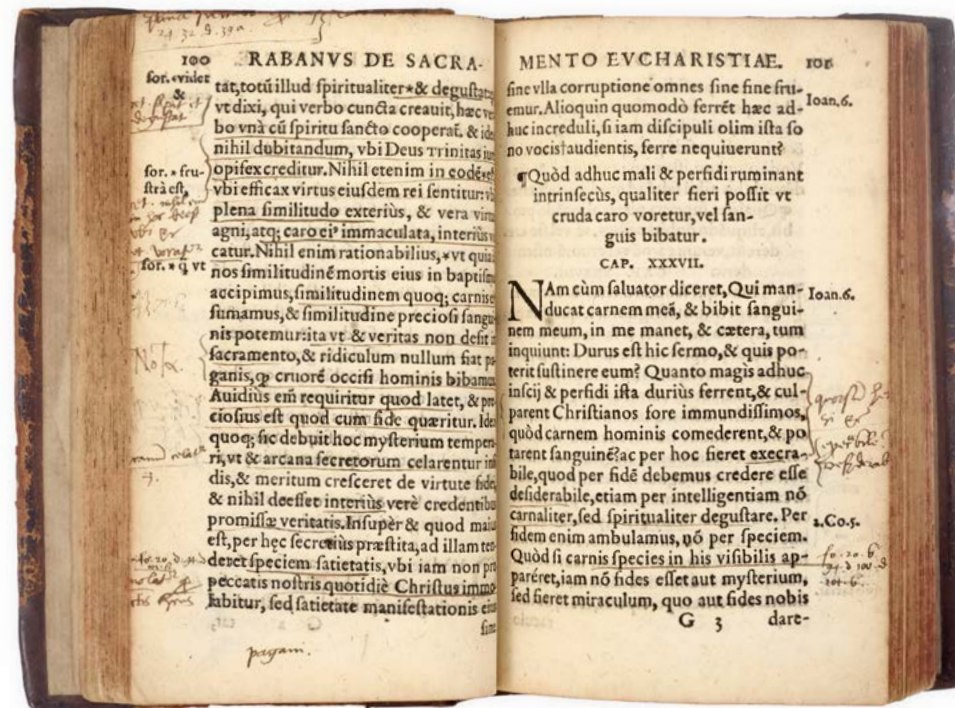 24 32 8. 39a
100 RABANVS DE SACRA-
for. *videt
&
tat, totũ illud spiritualiter*& degustat,
vt dixi, qui verbo cuncta creauit, hæc ver
bo vnà cũ spiritu sancto cooperat̃. & ideo
nihil dubitandum, vbi Deus TRINITAS
for. * fru-
strà est,
opifex creditur. Nihil etenim in eodẽ
vbi efficax virtus eiusdem rei sentitur:
plena similitudo exteriùs, & vera
agni, atq; caro ei⁹ immaculata, interiùs
for. * q̃ vt
catur. Nihil enim rationabilius, *vt quia
nos similitudinẽ mortis eius in baptismo
accipimus, similitudinem quoq; carnis
sumamus, & similitudine preciosi sangui
nis potemur: ita vt & veritas non desit in
Nota.
sacramento, & ridiculum nullum fiat pa-
ganis, q̨ cruorẽ occisi hominis bibamus
Auidius em̃ requiritur quod latet, & pre
ciosius est quod cum fide quæritur. Ideo
quoq; sic debuit hoc mysterium tempera-
ri, vt & arcana secretorum celarentur
dis, & meritum cresceret de virtute fidei,
& nihil deesset interiùs verè credentibus
promissæ veritatis. Insupèr & quod maius
est, per hęc secretiùs præstita, ad illam ten
deret speciem satietatis, vbi iam non pro
peccatis nostris quotidiè Christus immo
labitur, sed satietate manifestationis eius
sine
pagani.
MENTO EVCHARISTIAE. 101
sine vlla corruptione omnes sine fine fru-
Ioan. 6.
emur. Alioquin quomodò ferrẽt hæc ad-
huc increduli, si iam discipuli olim ista so
no vocis†audientis, ferre nequiuerunt?
¶Quòd adhuc mali & perfidi ruminant
intrinsecùs, qualiter fieri possit vt
cruda caro voretur, vel san-
guis bibatur.
CAP. XXXVII.
NAm cùm saluator diceret, Qui man-
Ioan. 6.
ducat carnem meã, & bibit sangui-
nem meum, in me manet, & cætera, tum
inquiunt: Durus est hic sermo, & quis po-
terit sustinere eum? Quanto magis adhuc
inscij & perfidi ista durius ferrent, & cul-
parent Christianos fore immundissimos,
quòd carnem hominis comederent, & po
tarent sanguinẽ? ac per hoc fieret execra-
bile, quod per fidẽ debemus credere esse
desiderabile, etiam per intelligentiam nõ
carnaliter, sed spiritualiter degustare. Per
2. Co. 5.
fidem enim ambulamus, nõ per speciem.
Quòd si carnis species in his visibilis ap-
parẽret, iam nõ fides esset aut mysterium,
sed fieret miraculum, quo aut fides nobis
G 3 dare-